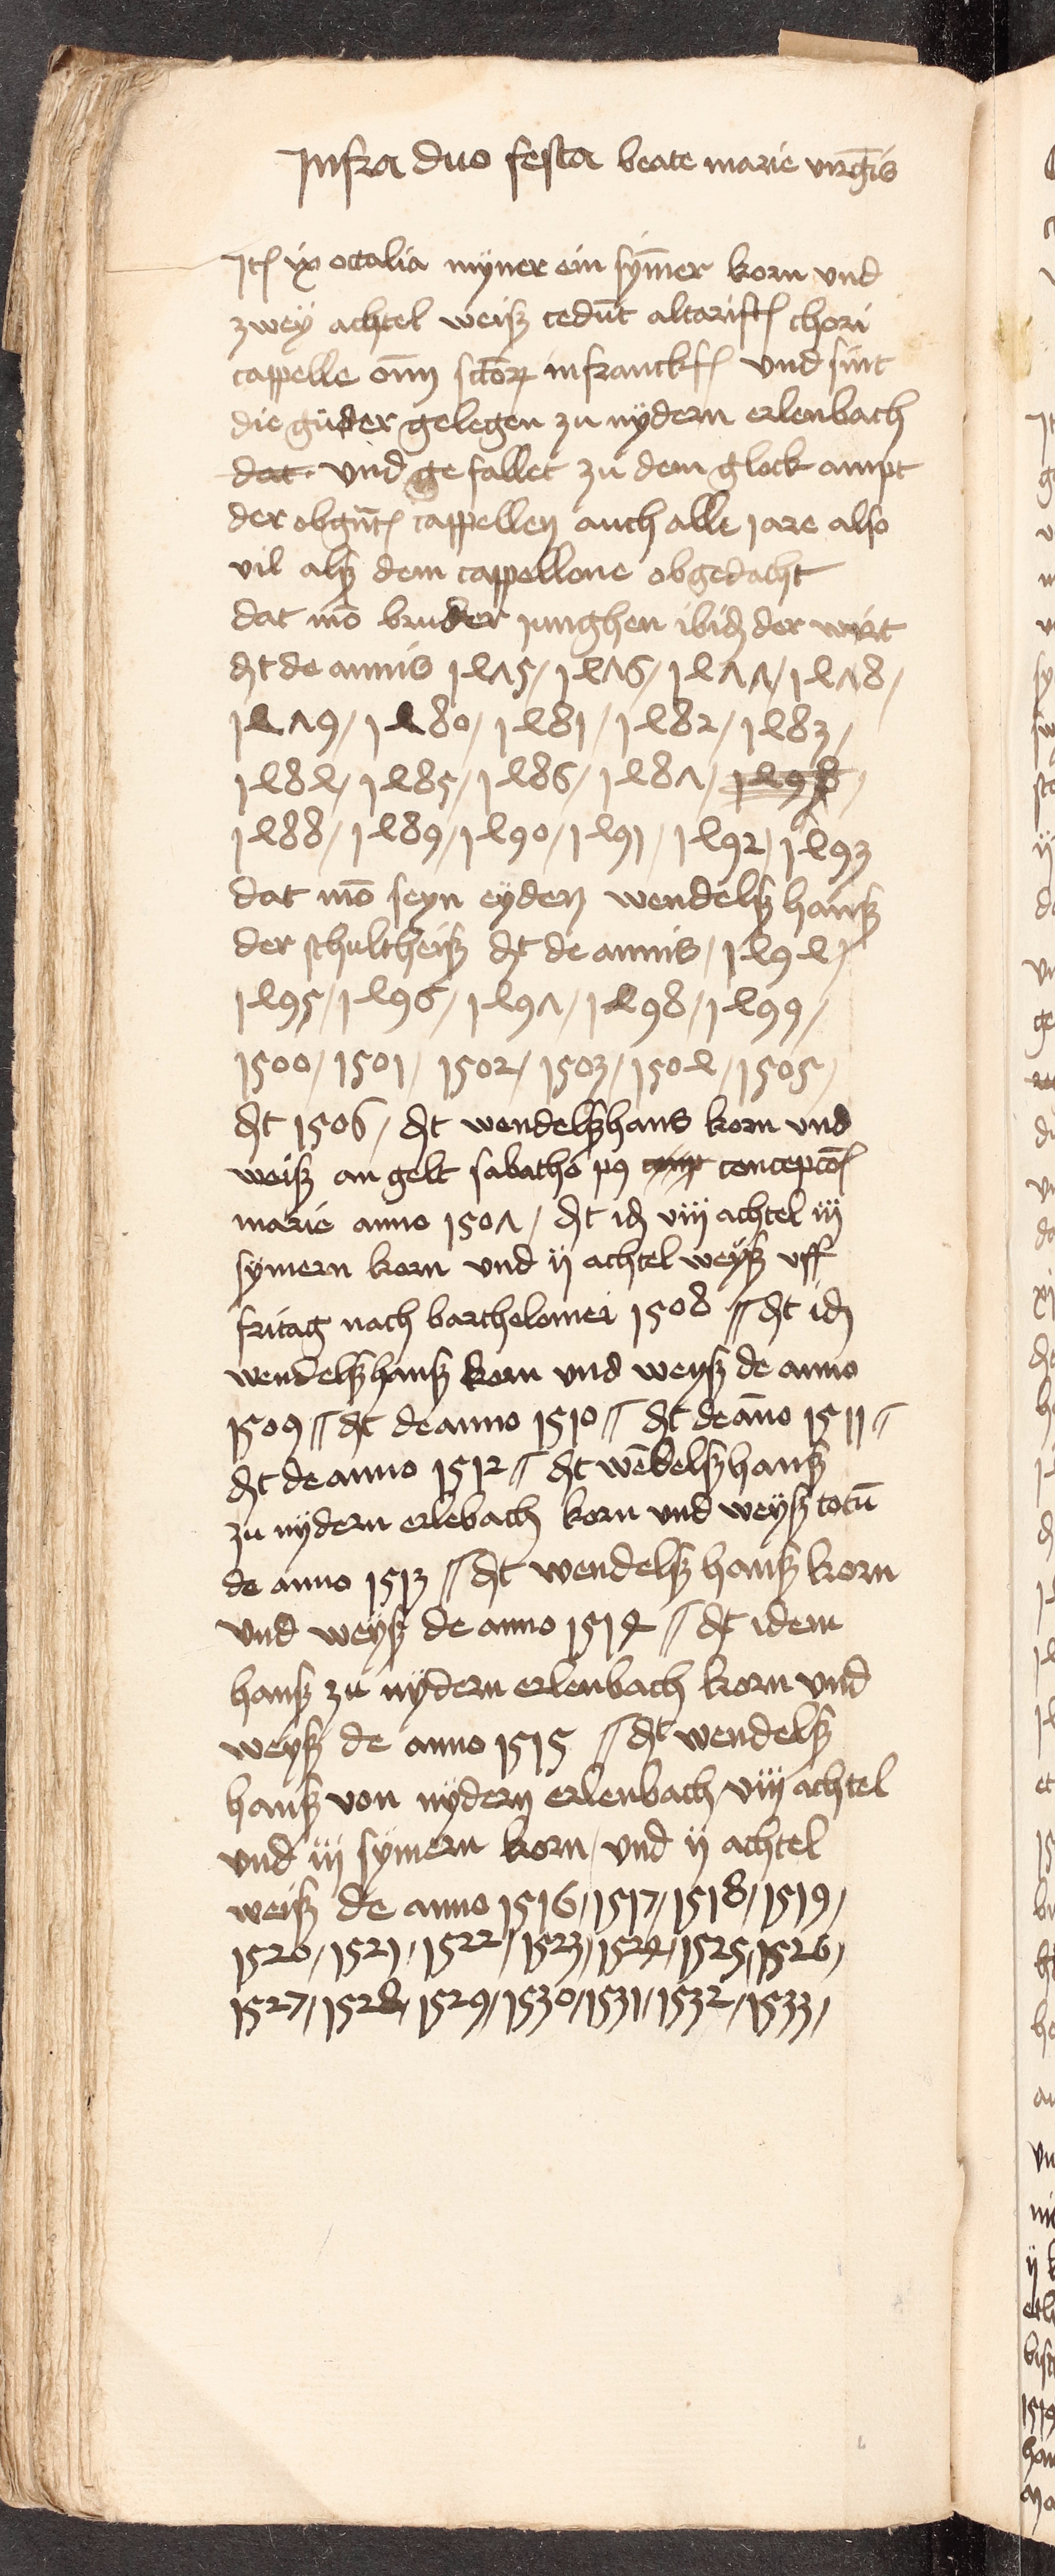 Infra duo festa beate marie virg̅is
Itꝭ ix octalia myner ein sym̅er korn vnd
zwey achtel weisz cedu̅t altaristꝭ chori
cappelle om̅ sctōꝝ in franckfꝭ vnd sint
die güder gelegen zu nÿdern erlenbach
dat vnd ge fallet zu dem glock ampt
der obgn̅tꝭ cappellen auch alle jare also
vil alsz dem cappellone obgedacht
dat mō bruder junghen ibid̅ der wirt
dt de annis 1475/ 1476/ 1477/ 1478/
1479/ 1480/ 1481/ 1482/ 1483/
1484/ 1485/ 1486/ 1487/ 1498/
1488/ 1489/ 1490/ 1491/ 1492/ 1493
dat mō seyn eyden wendelsz hansz
der schultheisz dt de annis/ 1494/
1495/ 1496/ 1497/ 1498/ 1499/
1500/ 1501/ 1502/ 1503/ 1504/ 1505/
dt 1506/ dt wendelszhans korn vnd
weisz an gelt sabatho pꝰ concepcōꝭ
marie anno 1507/ dt id̅ viij achtel iij
symern korn vnd ij achtel weysz vff
fritag nach bartholomei 1508 // dt id̅
wendelszhansz korn vnd weysz de anno
1509 // dt de anno 1510 // dt de an̅o 1511 //
dt de anno 1512 // dt we̅delszhansz
zu nydern erlebach korn vnd weysz totu̅
de anno 1513 // dt wendelsz hansz korn
vnd weysz de anno 1514 // dt idem
hansz zu nydern erlenbach korn vnd
weysz de anno 1515 // dt wendelsz
hansz von nydern erlenbach viij achtel
vnd iij symern korn/ vnd ij achtel
weisz de anno 1516/ 1517/ 1518/ 1519/
1520/ 1521/ 1522/ 1523/ 1524/ 1525/ 1526/
1527/ 1528/ 1529/ 1530/ 1531/ 1532/ 1533/